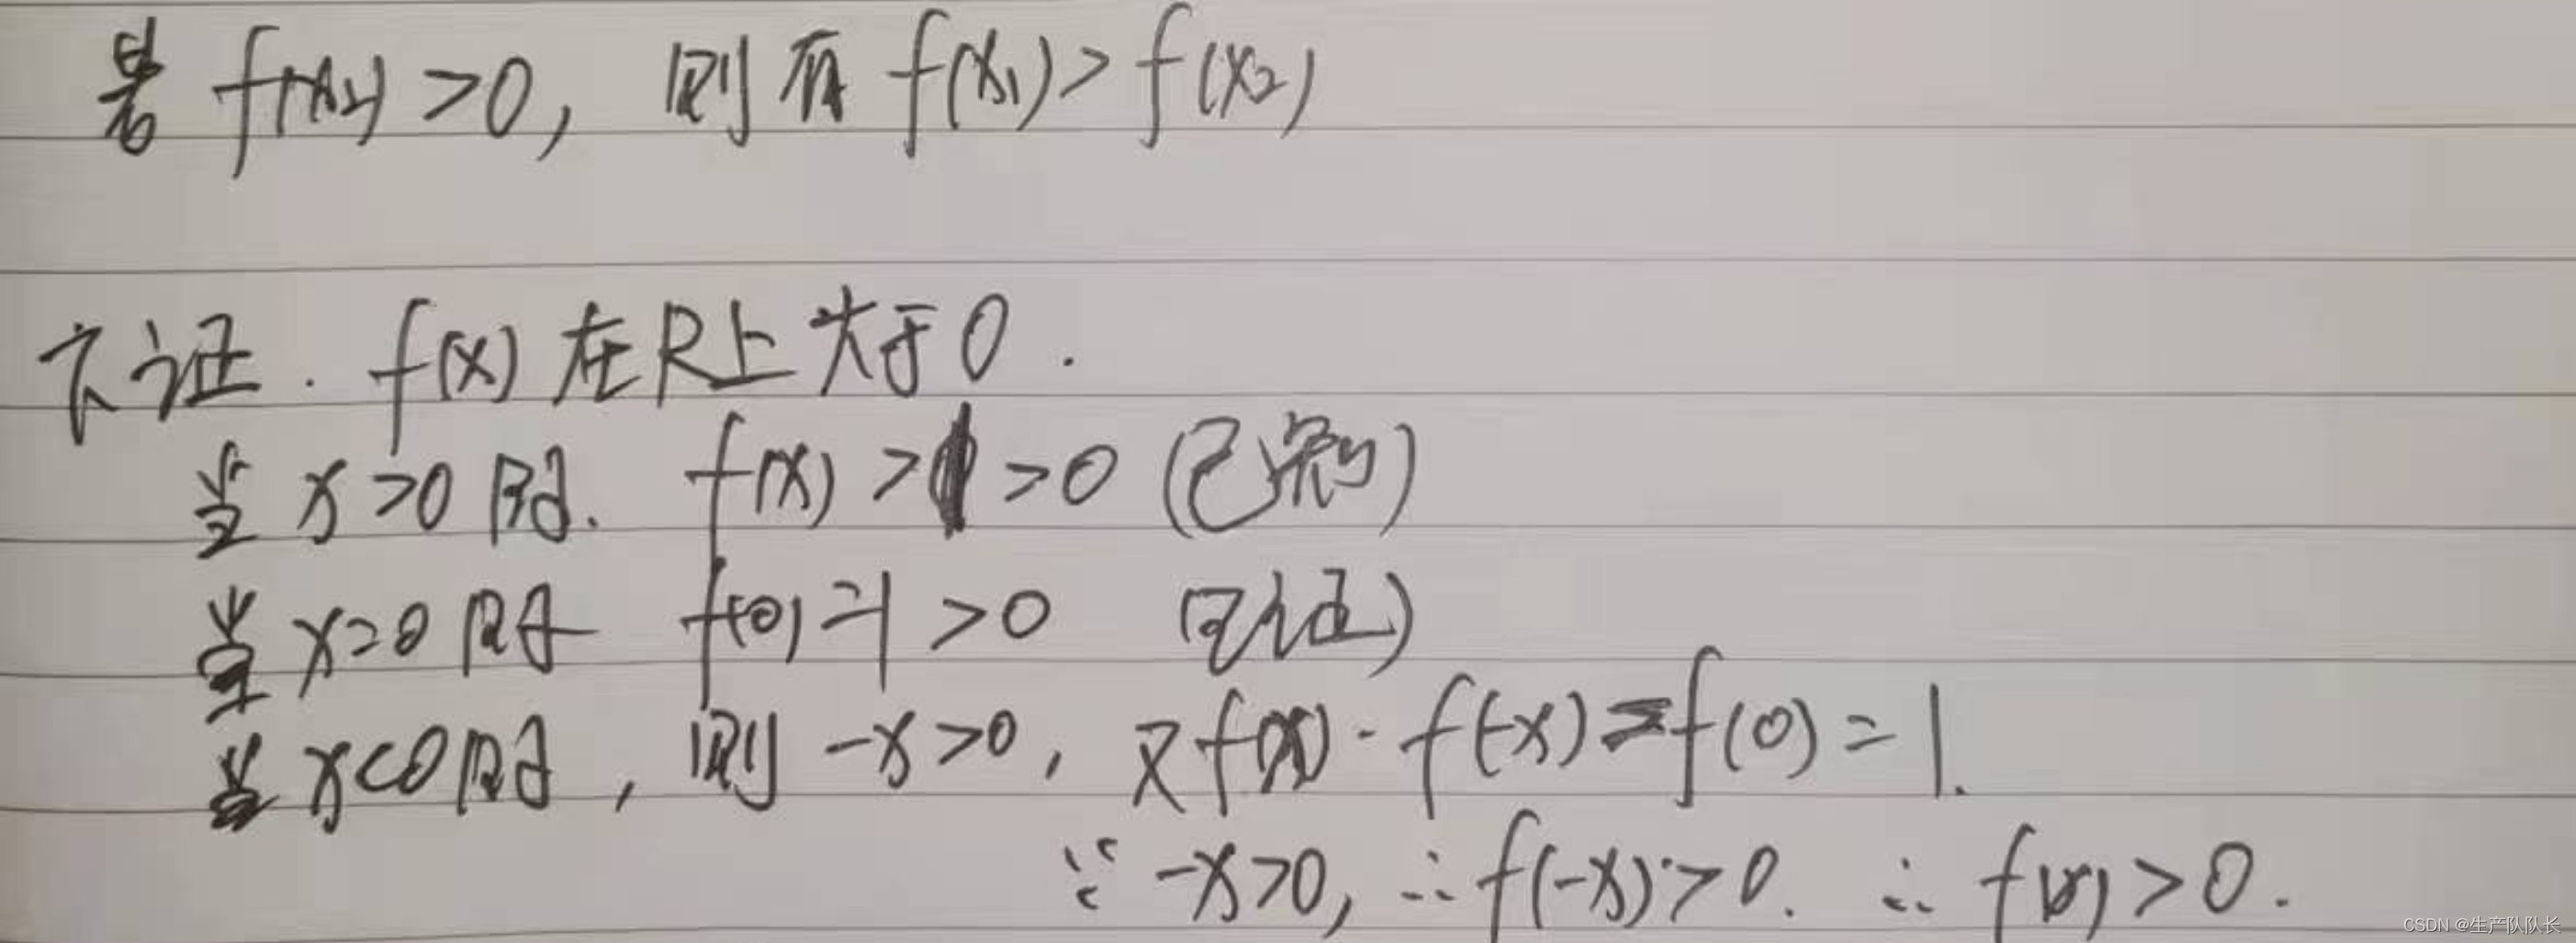 若 f(x₂) >0, 则有 f(x₁) > f(x₂)
下证. f(x) 在R上大于0.
当 x>0 时. f(x) >1 >0 (已知)
当 x=0 时 f(0) =1 >0 (已证)
当 x<0时, 则 -x>0, 又f(x)·f(-x)=f(0)=1.
∵ -x>0, ∴ f(-x)>0. ∴ f(x) >0.
CSDN @生产队队长